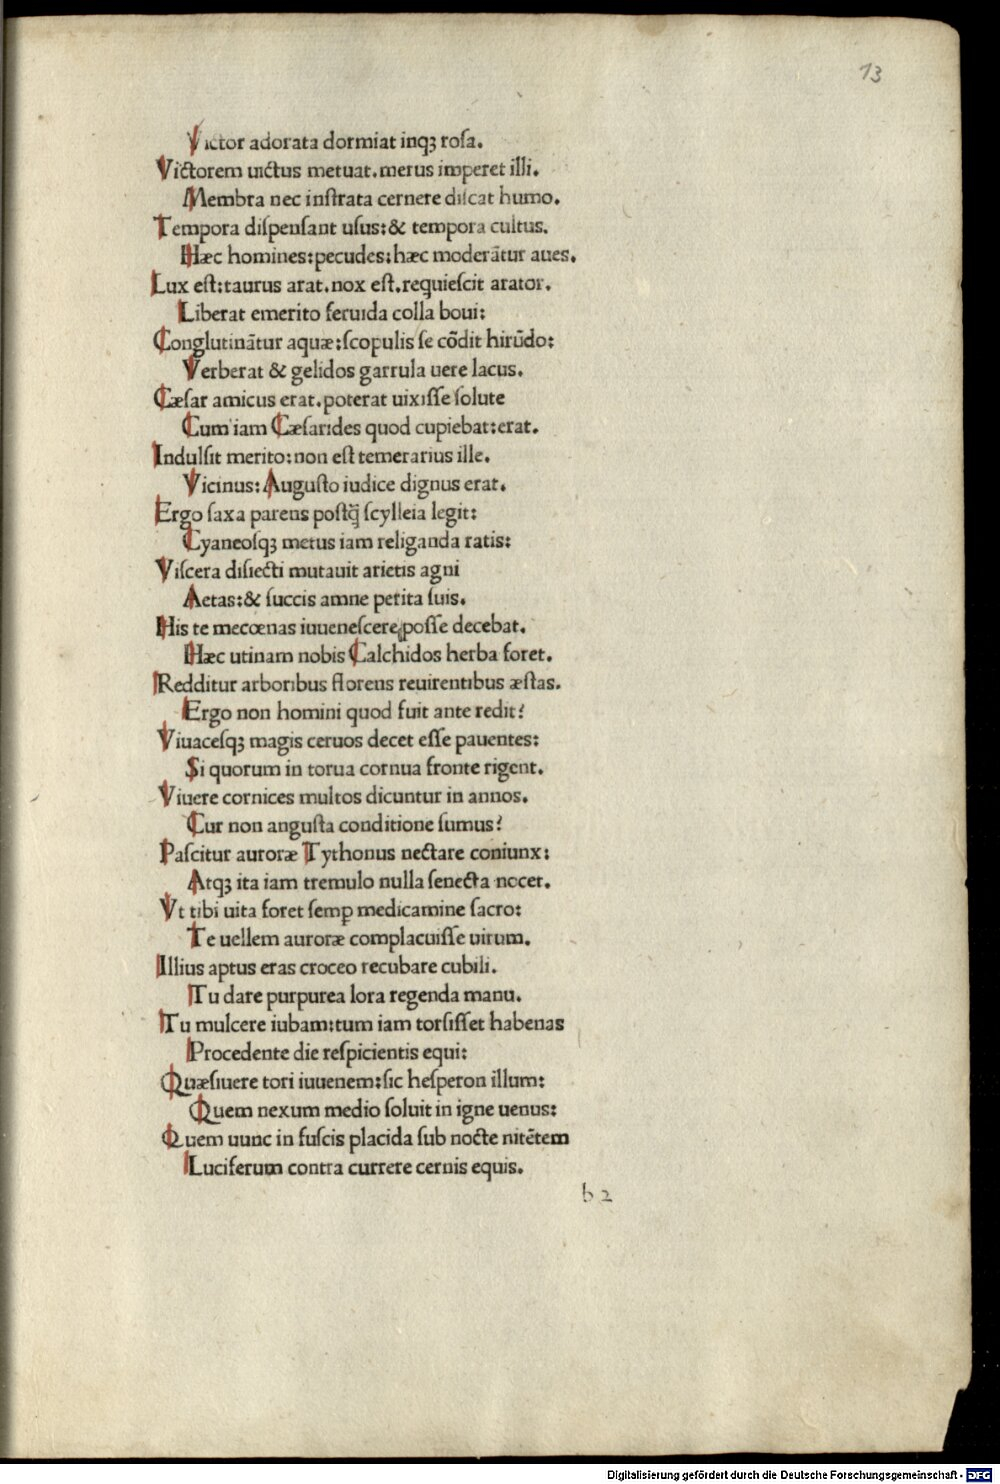 13
Victor adorata dormiat inqꝫ roſa.
Victorem uictus metuat. metus imperet illi.
Membra nec inſtrata cernere diſcat humo.
Tempora diſpenſant uſus: & tempora cultus.
Hæc homines: pecudes: hæc moderãtur aues.
Lux eſt: taurus arat. nox eſt. requieſcit arator.
Liberat emerito feruida colla boui:
Conglutinãtur aquæ: ſcopulis ſe cõdit hirũdo:
Verberat & gelidos garrula uere lacus.
Cæſar amicus erat. poterat uixiſſe ſolute
Cum iam Cæſarides quod cupiebat: erat.
Indulſit merito: non eſt temerarius ille.
Vicinus: Auguſto iudice dignus erat.
Ergo ſaxa parens poſtq̃ ſcylleia legit:
Cyaneoſqꝫ metus iam religanda ratis:
Viſcera diſiecti mutauit arietis agni
Aetas: & ſuccis amne petita ſuis.
His te mecœnas iuueneſcere poſſe decebat.
Hæc utinam nobis Calchidos herba foret.
Redditur arboribus florens reuirentibus æſtas.
Ergo non homini quod fuit ante redit?
Viuaceſqꝫ magis ceruos decet eſſe pauentes:
Si quorum in torua cornua fronte rigent.
Viuere cornices multos dicuntur in annos.
Cur non anguſta conditione ſumus?
Paſcitur auroræ Tythonus nectare coniunx:
Atqꝫ ita iam tremulo nulla ſenecta nocet.
Vt tibi uita foret ſemꝑ medicamine ſacro:
Te uellem auroræ complacuiſſe uirum.
Illius aptus eras croceo recubare cubili.
Tu dare purpurea lora regenda manu.
Tu mulcere iubam: tum iam torſiſſet habenas
Procedente die reſpicientis equi:
Quæſiuere tori iuuenem: ſic heſperon illum:
Quem nexum medio ſoluit in igne uenus:
Quem uunc in fuſcis placida ſub nocte nitẽtem
Luciferum contra currere cernis equis.
b 2
Digitalisierung gefördert durch die Deutsche Forschungsgemeinschaft - DFG